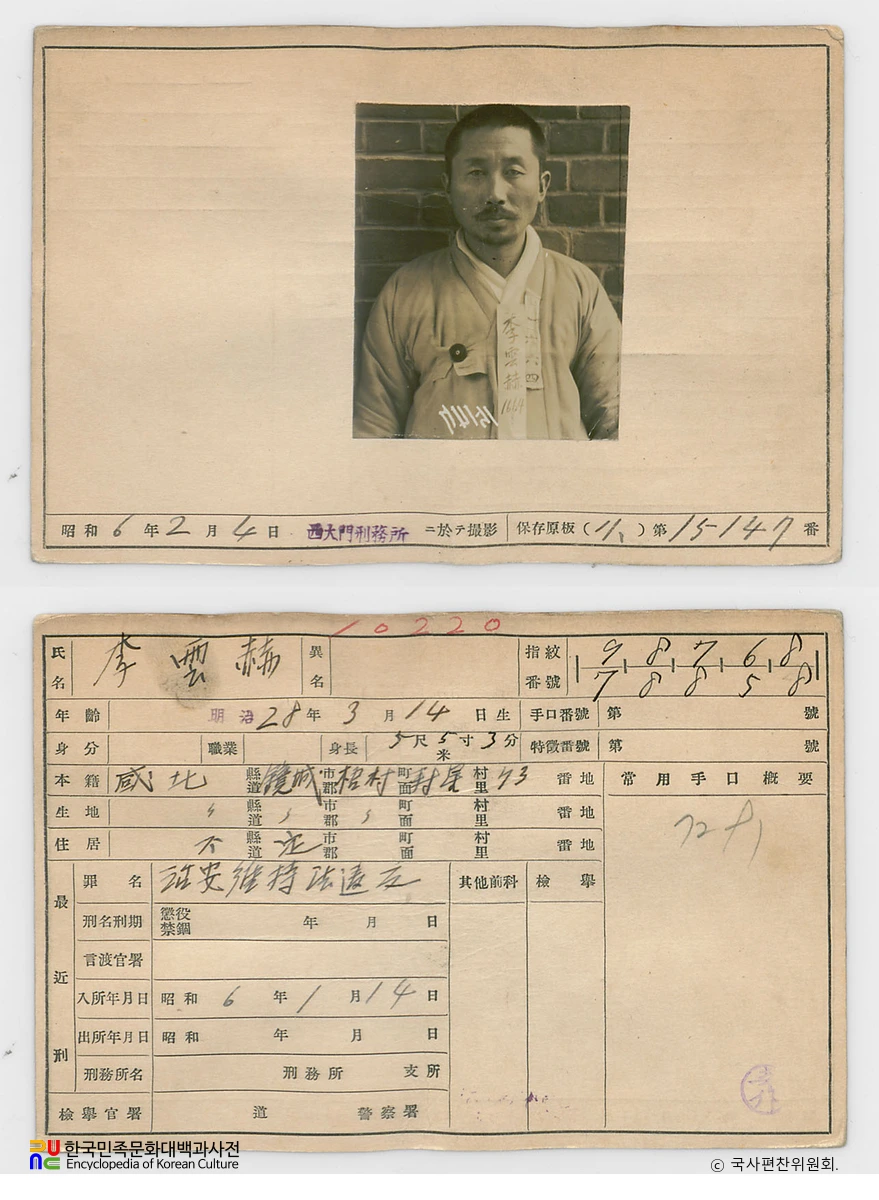 李雲赫
1664
15147
昭和 6 年 2 月 4 日 西大門刑務所 ニ於テ撮影 保存原板 ( ) 第 15147 番
10220
氏名 李雲赫 異名 指紋番號 9 8 7 6 8
7 8 8 5 8
年齡 明治 28 年 3 月 14 日生 手口番號 第 號
身分 職業 身長 5 尺 5 寸 3 分 米 特徵番號 第 號
本籍 咸北 縣道 鏡城 市郡 梧村 町面 村里 73 番地 常用手口概要
生地 〃 縣道 〃 市郡 〃 町面 村里 番地
住居 不 縣道 定 市郡 町面 村里 番地
最近刑 罪名 治安維持法違反 其他前科 檢擧
刑名刑期 懲役 禁錮 年 月 日
言渡官署
入所年月日 昭和 6 年 1 月 14 日
出所年月日 昭和 年 月 日
刑務所名 刑務所 支所
檢擧官署 道 警察署
한국민족문화대백과사전
Encyclopedia of Korean Culture
© 국사편찬위원회.